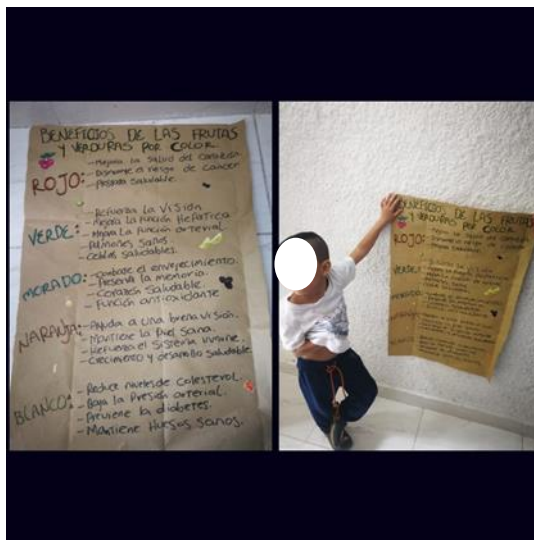 BENEFICIOS DE LAS FRUTAS
Y VERDURAS POR COLOR.
ROJO:
- Mejora la salud del corazón
- Disminuye el riesgo de cancer
- Presión saludable.
VERDE:
- Refuerza La Visión
- Mejora La Función Hepatica
- Mejora La Función arterial
- Pulmones sanos.
- Celulas saludables.
MORADO:
- Combate el envejecimiento.
- Preserva la memoria.
- Corazón Saludable.
- Función antioxidante
NARANJA:
- Ayuda a una buena visión.
- Mantiene la Piel sana.
- Refuerza el Sistema inmune.
- Crecimiento y desarrollo saludable
BLANCO:
- Reduce niveles de colesterol.
- Baja la Presión arterial.
- Previene la diabetes.
- Mantiene Huesos sanos.
BENEFICIOS DE LAS FRUTAS
Y VERDURAS POR COLOR.
ROJO:
VERDE:
MORADO: